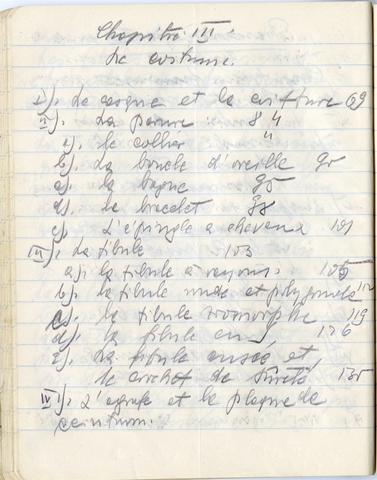 Chapitre III.
Le costume.
I). Le casque et la coiffure 69
II). La parure : 84
a). le collier "
b). la boucle d'oreille 90
c). la bague 95
d). le bracelet 98
e). L'épingle à cheveux 101
III). La fibule 103
a). la fibule à rayons. 105
b). la fibule ronde et polylobée 112
c). la fibule zoomorphe 119
d). la fibule en S 126
e). La fibule ansée et
le crochet de sûreté 135
IV). L'agrafe et la plaque de
ceinture.